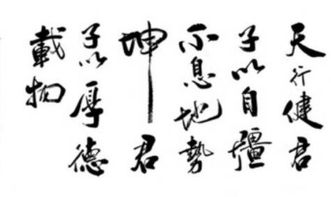 天行健君
子以自彊
不息地勢
坤君
子以厚德
載物